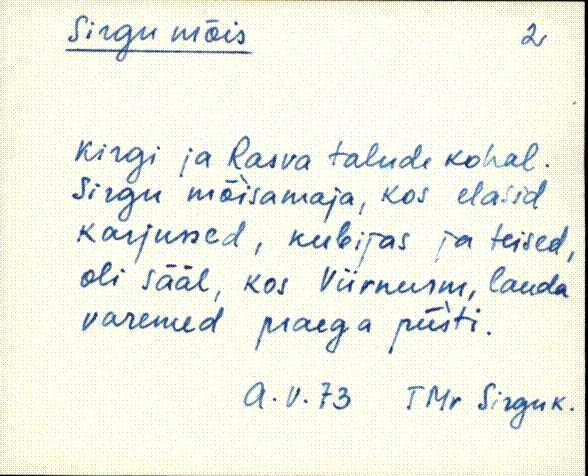 Sirgu mõis 2
Kirgi ja Rasva talude kohal.
Sirgu mõisamaja, kos elasid
karjused, kubijas ja teised,
oli sääl, kos Viirnurm, lauda
varemed praega püsti.
A.V.73 TMr Sirguk.